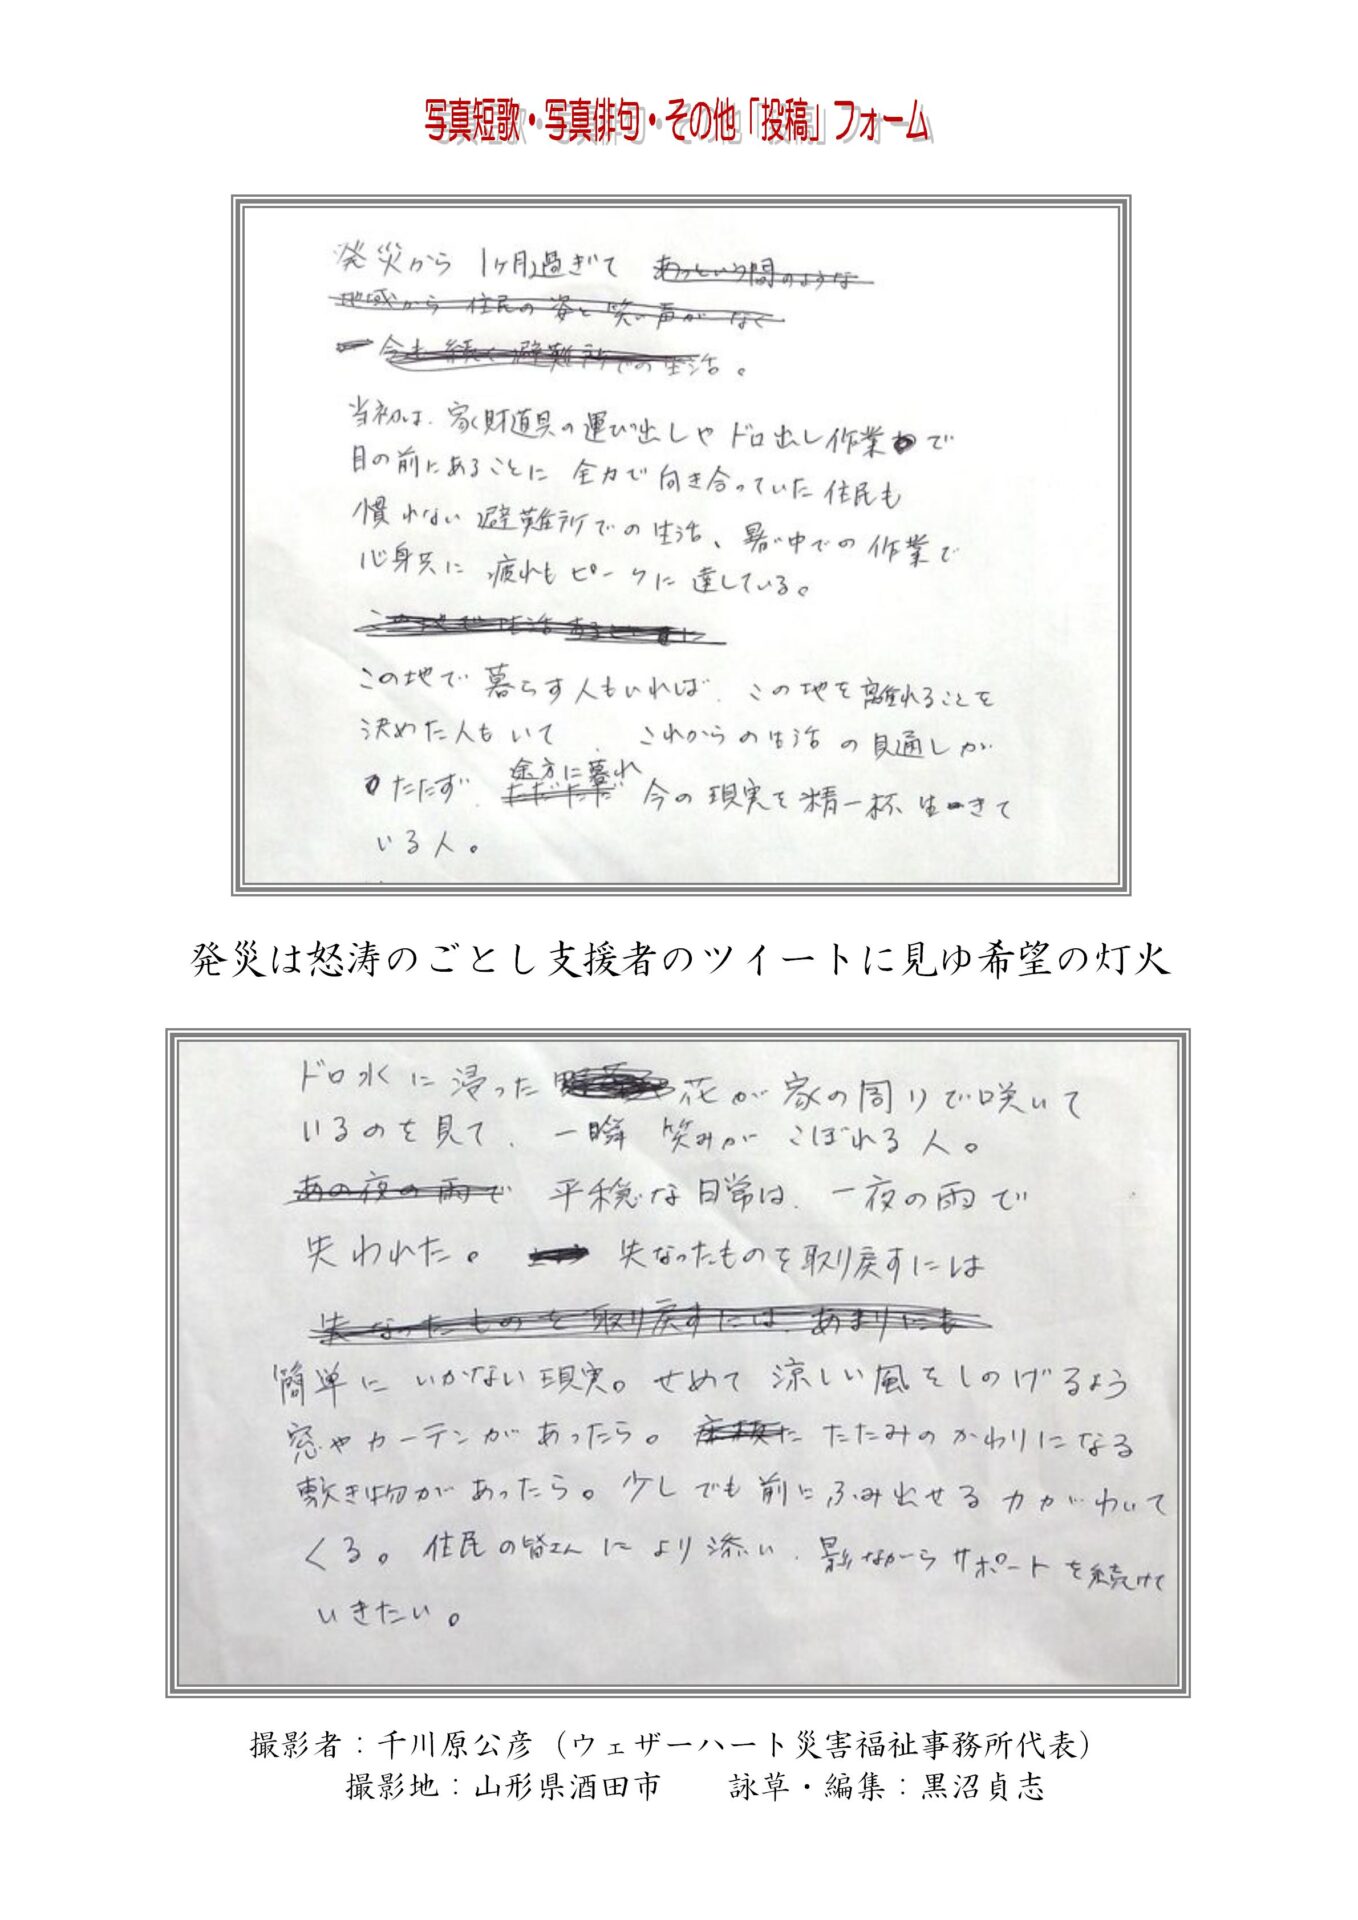 写真短歌・写真俳句・その他「投稿」フォーム
発災から 1ヶ月過ぎて あっという間のような
地域から 住民の姿と笑い声がなく
今も続く避難所での生活。
当初は、家財道具の運び出しやドロ出し作業で
目の前にあることに 全力で向き合っていた住民も
慣れない避難所での生活、暑い中での作業で
心身共に 疲れもピークに達している。
この地で暮らす人もいれば、この地を離れることを
決めた人もいて、これからの生活の見通しが
途方に暮れ
たたず、ただただ 今の現実を精一杯生きて
いる人。
発災は怒涛のごとし支援者のツイートに見ゆ希望の灯火
ドロ水に浸った 花が家の周りで咲いて
いるのを見て、一瞬 笑みがこぼれる人。
あの夜の雨で 平穏な日常は、一夜の雨で
失われた。 失なったものを取り戻すには
失なったものを取り戻すには、あまりにも
簡単にいかない現実。せめて涼しい風をしのげるよう
窓やカーテンがあったら。 たたみのかわりになる
敷き物があったら。少しでも前にふみ出せる力がわいて
くる。住民の皆さんにより添い、影ながらサポートを続けて
いきたい。
撮影者：千川原公彦（ウェザーハート災害福祉事務所代表）
撮影地：山形県酒田市　　詠草・編集：黒沼貞志